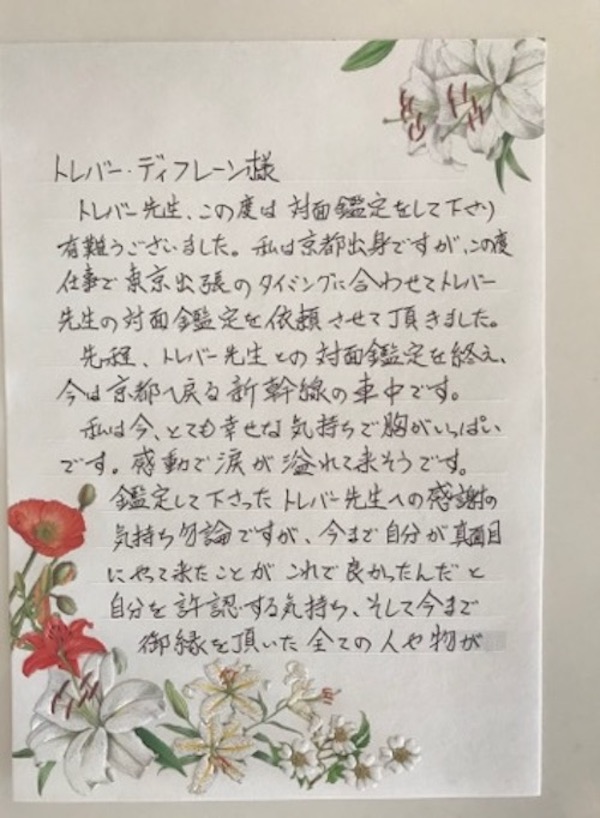 トレバー・ディフレーン様
トレバー先生、この度は対面鑑定をして下さり
有難うございました。私は京都出身ですが、この度
仕事で東京出張のタイミングに合わせてトレバー
先生の対面鑑定を依頼させて頂きました。
先程、トレバー先生との対面鑑定を終え、
今は京都へ戻る新幹線の車中です。
私は今、とても幸せな気持ちで胸がいっぱい
です。感動で涙が溢れて来そうです。
鑑定して下さったトレバー先生への感謝の
気持ち勿論ですが、今まで自分が真面目
にやって来たことがこれで良かったんだと
自分を許認する気持ち、そして今まで
御縁を頂いた全ての人や物が